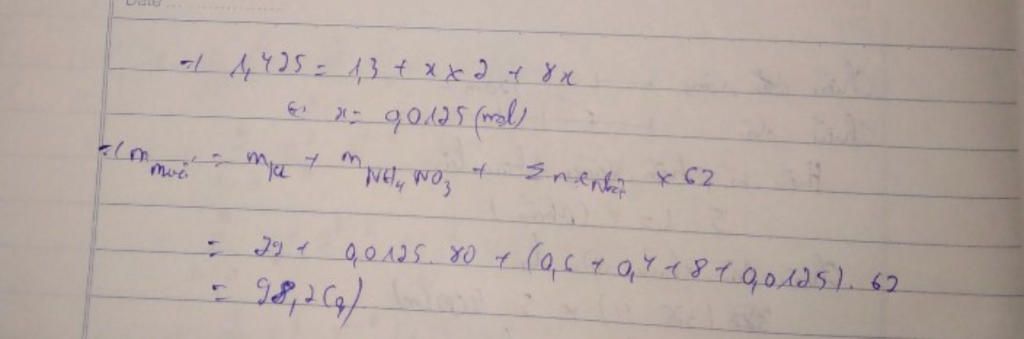 Date
=> 1,425 = 1,3 + x × 2 + 8x
<=> x = 0,0125 (mol)
=> m muối = m KL + m NH4NO3 + Σ n e nhận × 62
= 29 + 0,0125 . 80 + (0,6 + 0,4 + 8 + 0,0125) . 62
= 98,2 (g)